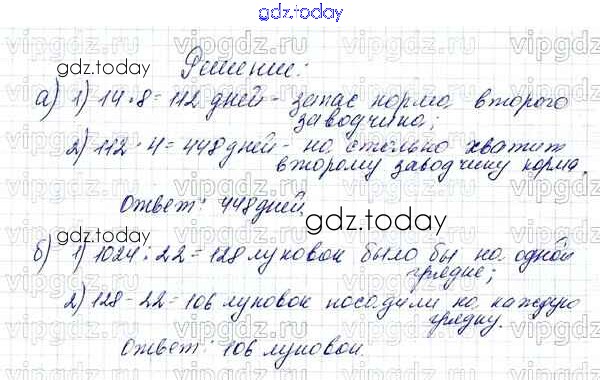 gdz.today
Решение:
а) 1) 14 · 8 = 112 дней - запас корма второго
заводчика;
2) 112 · 4 = 448 дней - на столько хватит
второму заводчику корма.
Ответ: 448 дней
gdz.today
б) 1) 1024 : 22 = 128 луковок было бы на одной
грядке;
2) 128 - 22 = 106 луковок посадили на каждую
грядку.
Ответ: 106 луковок.
gdz.today
vipgdz.ru